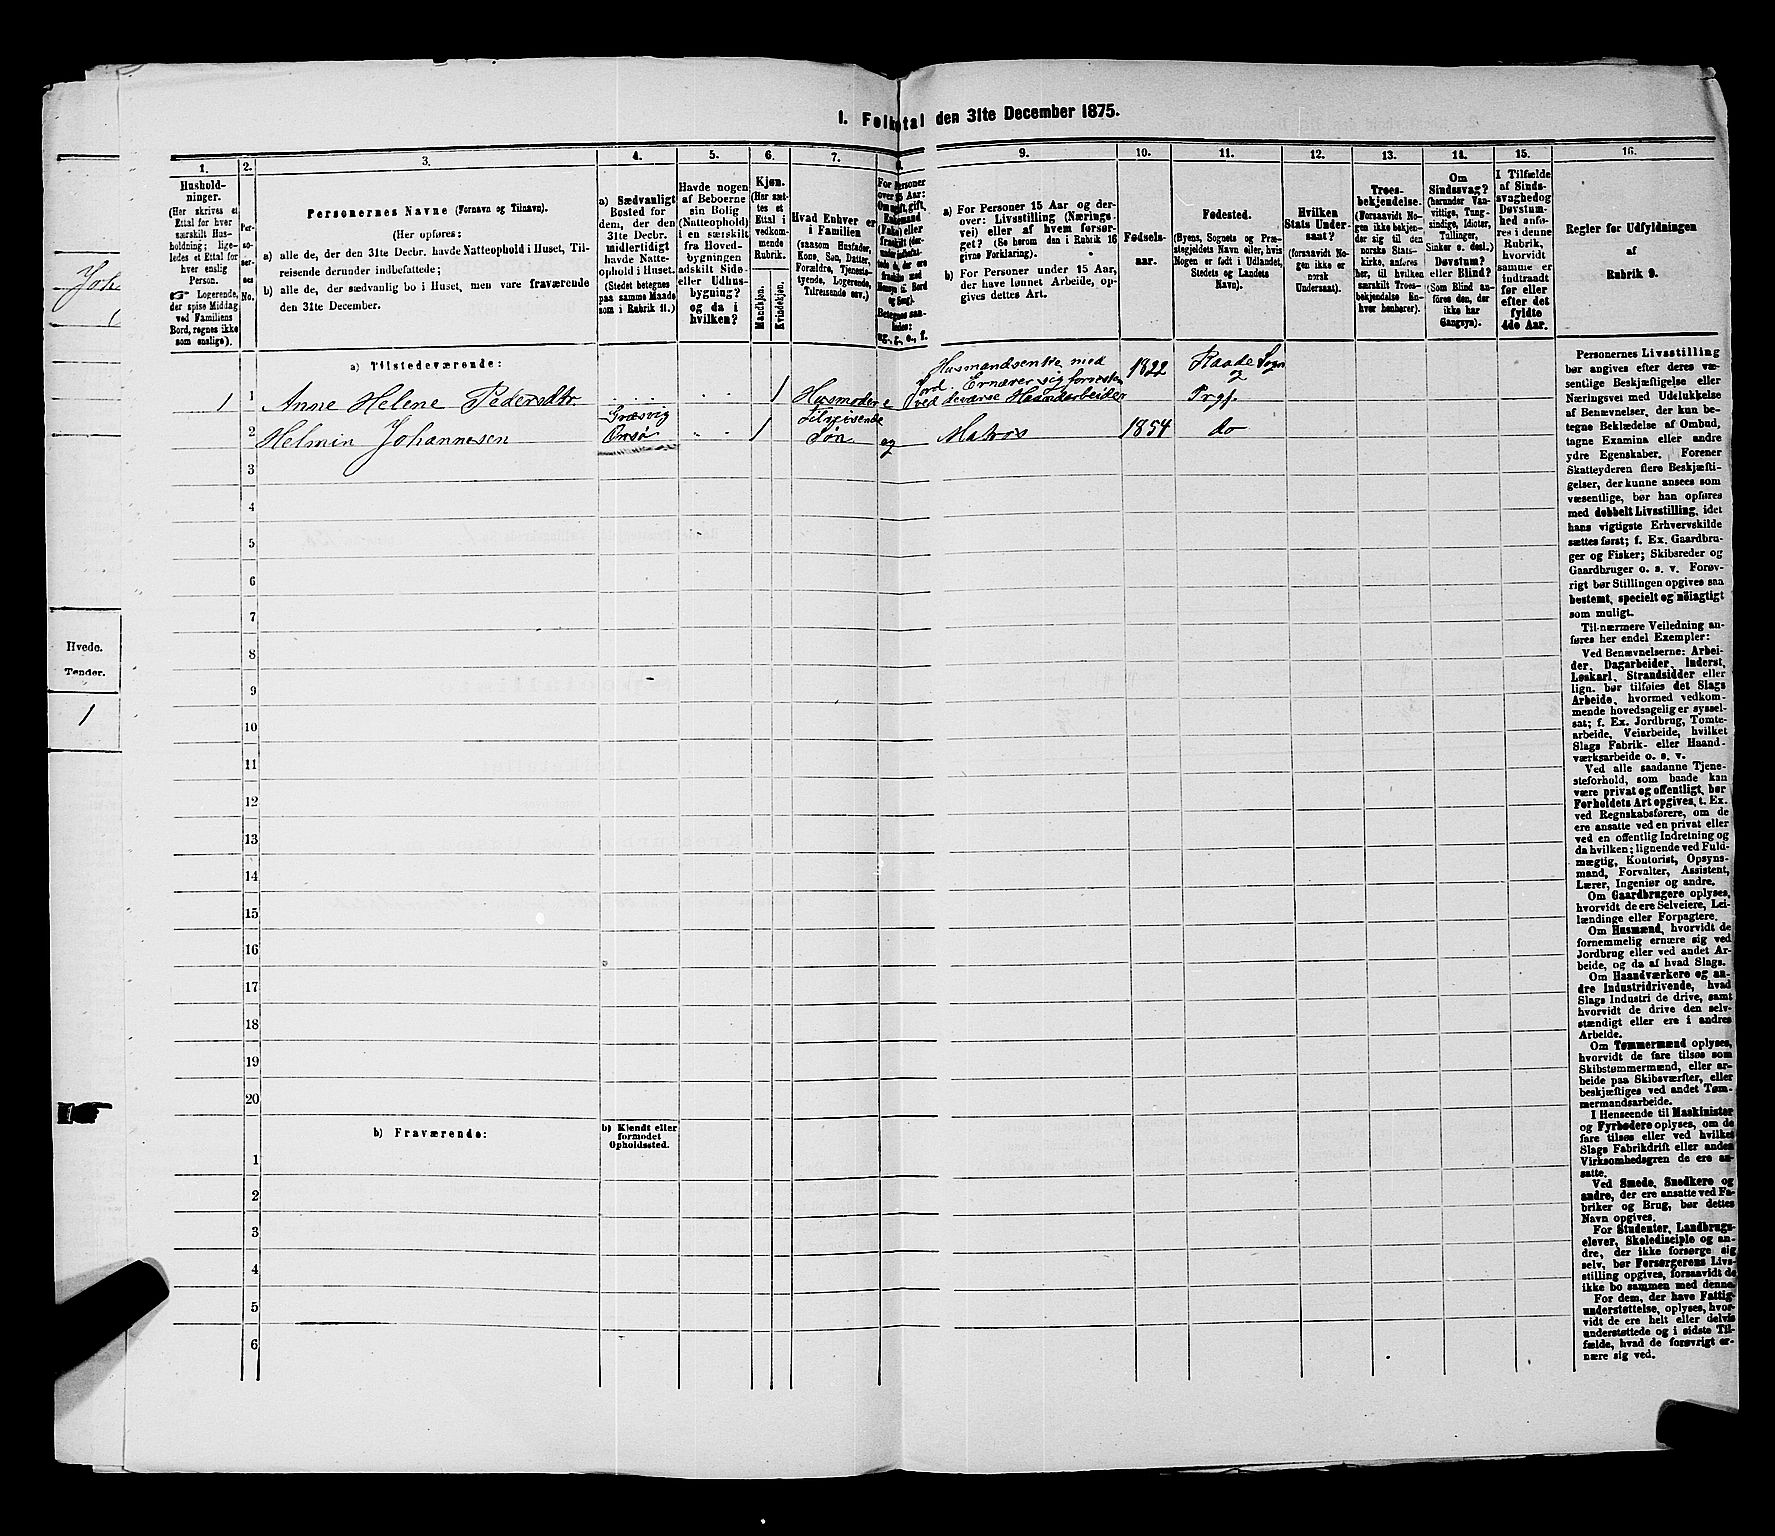 I. Folketal den 31te December 1875.
1.
2.
3.
4.
5.
6.
7.
8.
9.
10.
11.
12.
13.
14.
15.
16.
Hushold-
ninger.
(Her skrives et
Ettal for hver
særskilt Hus-
holdning; lige-
ledes et Ettal for
hver enslig
Person.
☞ Logerende,
der spise Middag
ved Familiens
Bord, regnes ikke
som enslige).
Per-
so-
ner-
nes
No.
Personernes Navne (Fornavn og Tilnavn).
(Her opføres:
a) alle de, der den 31te Decbr. havde Natteophold i Huset, Til-
reisende derunder indbefattede;
b) alle de, der sædvanlig bo i Huset, men vare fraværende
den 31te December.
a) Sædvanligt
Bosted for
dem, der den
31te Decbr.
midlertidigt
havde Natte-
ophold i Huset.
(Stedet betegnes
paa samme Maade
som i Rubrik 11.)
Havde nogen
af Beboerne
sin Bolig
(Natteophold)
i en særskilt
fra Hoved-
bygningen
adskilt Side-
eller Udhus-
bygning?
og da i
hvilken?
Kjøn.
(Her sæt-
tes et
Ettal i
vedkom-
mende
Rubrik.
Mandkjøn.
Kvindekjøn.
Hvad Enhver er
i Familien
(saasom Husfader,
Kone, Søn, Datter,
Forældre, Tjeneste-
tyende, Logerende,
Tilreisende osv.)
For Personer
over 15 Aar:
Om ugift, gift,
Enkemand
(Enke) eller
fraskilt
og Seng).
Betegnes saa-
ledes:
ug., g., e., f.
a) For Personer 15 Aar og der-
over: Livsstilling (Nærings-
vei) eller af hvem forsør-
get? (Se herom den i Rubrik 16
givne Forklaring).
b) For Personer under 15 Aar,
der have lønnet Arbeide, op-
gives dettes Art.
Fødsels-
aar.
Fødested.
(Byens, Sognets og Præ-
stegjeldets Navn eller, hvis
Nogen er født i Udlandet,
Stedets og Landets
Navn).
Hvilken
Stats Under-
saat?
(forsaavidt No-
gen ikke er
norsk
Undersaat).
Troes-
bekjendelse.
(Forsaavidt No-
gen ikke bekjen-
der sig til den
norske Stats-
kirke, anføres
her, til hvilken
særskilt Troes-
bekjendelse En-
hver henhører).
Om
Sindssvag?
(herunder Van-
vittige, Tung-
sindige, Idioter,
Tullinger,
Sinker o. desl.)
Døvstum?
eller Blind?
(Som Blind an-
føres den, der
ikke har
Gangsyn).
I Tilfælde
af Sinds-
svaghed og
Døvstum-
hed anfø-
res i denne
Rubrik,
hvorvidt
samme er
indtraadt
før eller
efter det
fyldte
4de Aar.
Regler for Udfyldningen
af
Rubrik 9.
a) Tilstedeværende:
1 1 Anne Helene Pedersdtr. 1 Husmoder e Husmandsenke med
Jord. Ernærer sig foresten
ved diverse Haandarbeider 1822 Raade Sogn
og
Prgj.
2 Helmin Johannesen Græsvig
Onsø 1 Tilreisende
Søn ug Matros 1854 do
3
4
5
6
7
8
9
10
11
12
13
14
15
16
17
18
19
20
b) Fraværende:
b) Kjendt eller
formodet
Opholdssted.
1
2
3
4
5
6
Personernes Livsstilling
bør angives efter deres væ-
sentlige Beskjæftigelse eller
Næringsvei med Udelukkelse
af Benævnelser, der kun be-
tegne Beklædelse af Ombud,
tagne Examina eller andre
ydre Egenskaber. Forener
Skatteyderen flere Beskjæfti-
gelser, der kunne ansees som
væsentlige, bør han opføres
med dobbelt Livsstilling, idet
hans vigtigste Erhvervskilde
sættes først; f. Ex. Gaardbru-
ger og Fisker; Skibsreder og
Gaardbruger o. s. v. Forøv-
rigt bør Stillingen opgives saa
bestemt, specielt og nöiagtigt
som muligt.
Til nærmere Veiledning an-
føres her endel Exempler:
Ved Benævnelserne: Arbei-
der, Dagarbeider, Inderst,
Løskarl, Strandsidder eller
lign. bør tilføies det Slags
Arbeide, hvormed vedkom-
mende hovedsagelig er syssel-
sat; f. Ex. Jordbrug, Tomte-
arbeide, Veiarbeide, hvilket
Slags Fabrik- eller Haand-
værksarbeide o. s. v.
Ved alle saadanne Tjene-
steforhold, som baade kan
være privat og offentligt, bør
Forholdets Art opgives, t. Ex.
ved Regnskabsførere, om de
ere ansatte ved en privat eller
ved en offentlig Indretning og
da hvilken; lignende ved Fuld-
mægtig, Kontorist, Opsyns-
mand, Forvalter, Assistent,
Lærer, Ingeniør og andre.
Om Gaardbrugere oplyses,
hvorvidt de ere Selveiere, Lei-
lændinge eller Forpagtere.
Om Husmænd, hvorvidt de
fornemmelig ernære sig ved
Jordbrug eller ved andet Ar-
beide, og da af hvad Slags.
Om Haandværkere og an-
dre Industridrivende, hvad
Slags Industri de drive, samt
hvorvidt de drive den selv-
stændigt eller ere i andres
Arbeide.
Om Tømmermænd oplyses,
hvorvidt de fare tilsøs som
Skibstømmermænd, eller ar-
beide paa Skibsværfter, eller
beskjæftiges ved andet Tøm-
mermandsarbeide.
I Henseende til Maskinister
og Fyrbødere oplyses, om de
fare tilsøs eller ved hvilket
Slags Fabrikdrift eller anden
Virksomhedsgren de ere an-
satte.
Ved Smede, Snedkere og
andre, der ere ansatte ved Fa-
briker og Brug, bør dettes
Navn opgives.
For Studenter, Landbrugs-
elever, Skoledisciple og an-
dre, der ikke forsørge sig
selv, bør Forsørgerens Livs-
stilling opgives, forsaavidt de
ikke bo sammen med denne.
For dem, der have Fattig-
understøttelse, oplyses, hvor-
vidt de ere helt eller delvis
understøttede og i sidste Til-
fælde, hvad de forøvrigt er-
nære sig ved.
Joh
Hvede.
Tønder.
1